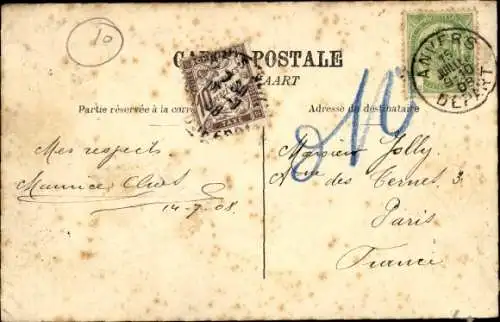 10
CARTE POSTALE
KAART
Partie réservée à la corre
Adresse du destinataire
ANVERS
DÉPART
10
Mes respects
Maurice
14-7-08
Monsieur Jolly
Rue des Ternes 3
Paris
France